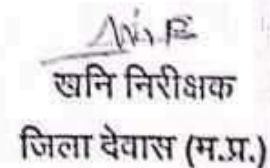 खनि निरीक्षक
जिला देवास (म.प्र.)